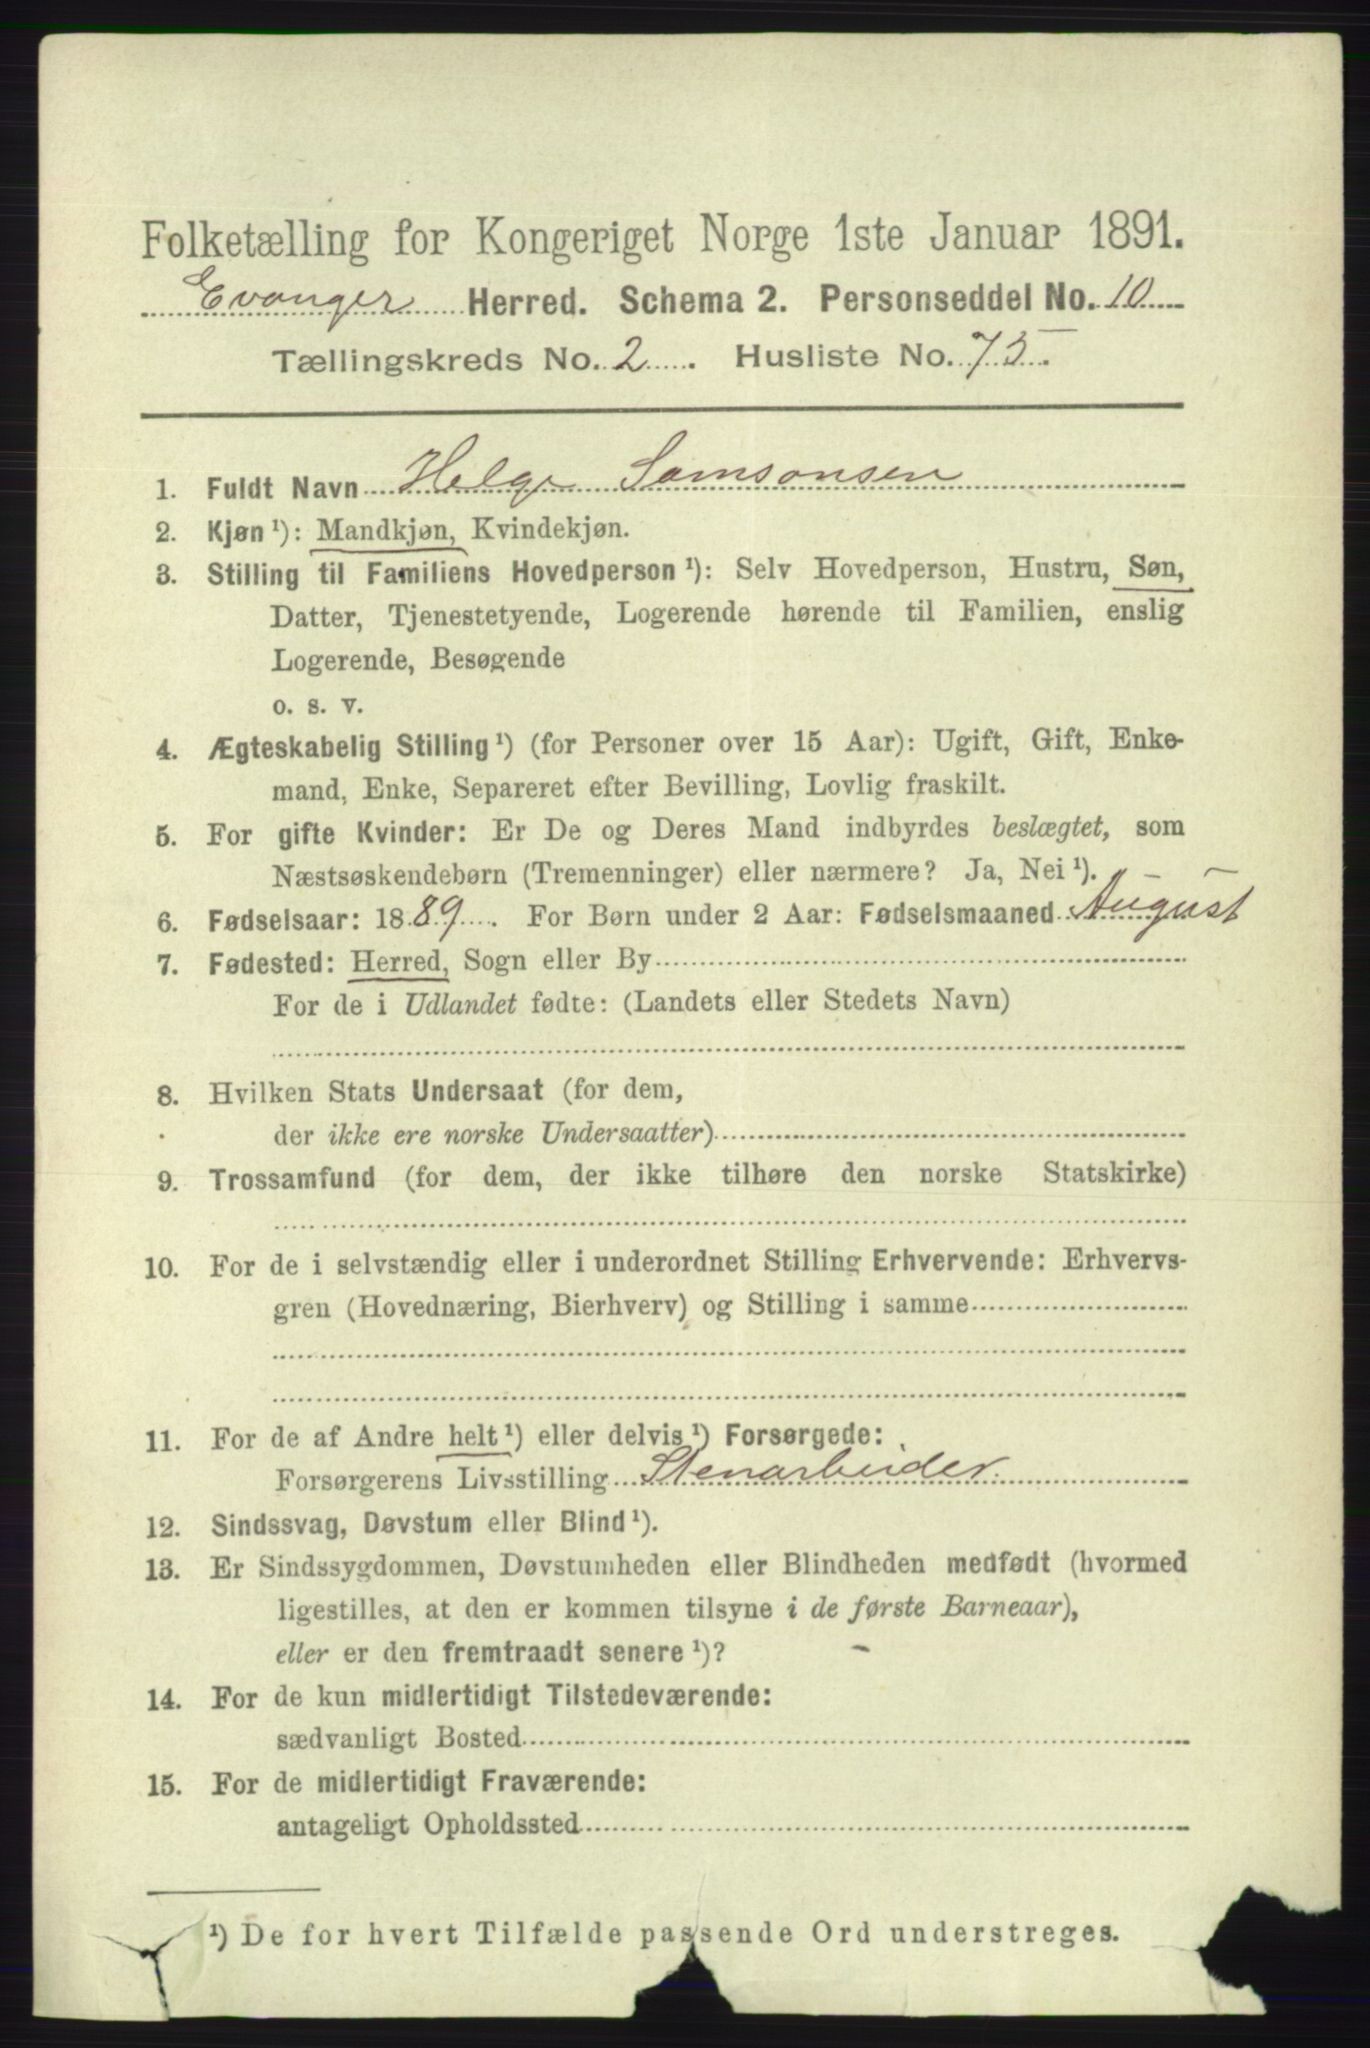 Folketælling for Kongeriget Norge 1ste Januar 1891.
Evanger Herred. Schema 2. Personseddel No. 10
Tællingskreds No. 2. Husliste No. 75.
1. Fuldt Navn Helge Samsonsen
2. Kjøn ¹): Mandkjøn, Kvindekjøn.
3. Stilling til Familiens Hovedperson ¹): Selv Hovedperson, Hustru, Søn,
Datter, Tjenestetyende, Logerende hørende til Familien, enslig
Logerende, Besøgende
o. s. v.
4. Ægteskabelig Stilling ¹) (for Personer over 15 Aar): Ugift, Gift, Enke-
mand, Enke, Separeret efter Bevilling, Lovlig fraskilt.
5. For gifte Kvinder: Er De og Deres Mand indbyrdes beslægtet, som
Næstsøskendebørn (Tremenninger) eller nærmere? Ja, Nei ¹).
6. Fødselsaar: 1889. For Børn under 2 Aar: Fødselsmaaned August
7. Fødested: Herred, Sogn eller By
For de i Udlandet fødte: (Landets eller Stedets Navn)
8. Hvilken Stats Undersaat (for dem,
der ikke ere norske Undersaatter)
9. Trossamfund (for dem, der ikke tilhøre den norske Statskirke)
10. For de i selvstændig eller i underordnet Stilling Erhvervende: Erhvervs-
gren (Hovednæring, Bierhverv) og Stilling i samme
11. For de af Andre helt ¹) eller delvis ¹) Forsørgede:
Forsørgerens Livsstilling Stenarbeider.
12. Sindssvag, Døvstum eller Blind ¹).
13. Er Sindssygdommen, Døvstumheden eller Blindheden medfødt (hvormed
ligestilles, at den er kommen tilsyne i de første Barneaar),
eller er den fremtraadt senere ¹)?
14. For de kun midlertidigt Tilstedeværende:
sædvanligt Bosted
15. For de midlertidigt Fraværende:
antageligt Opholdssted
¹) De for hvert Tilfælde passende Ord understreges.